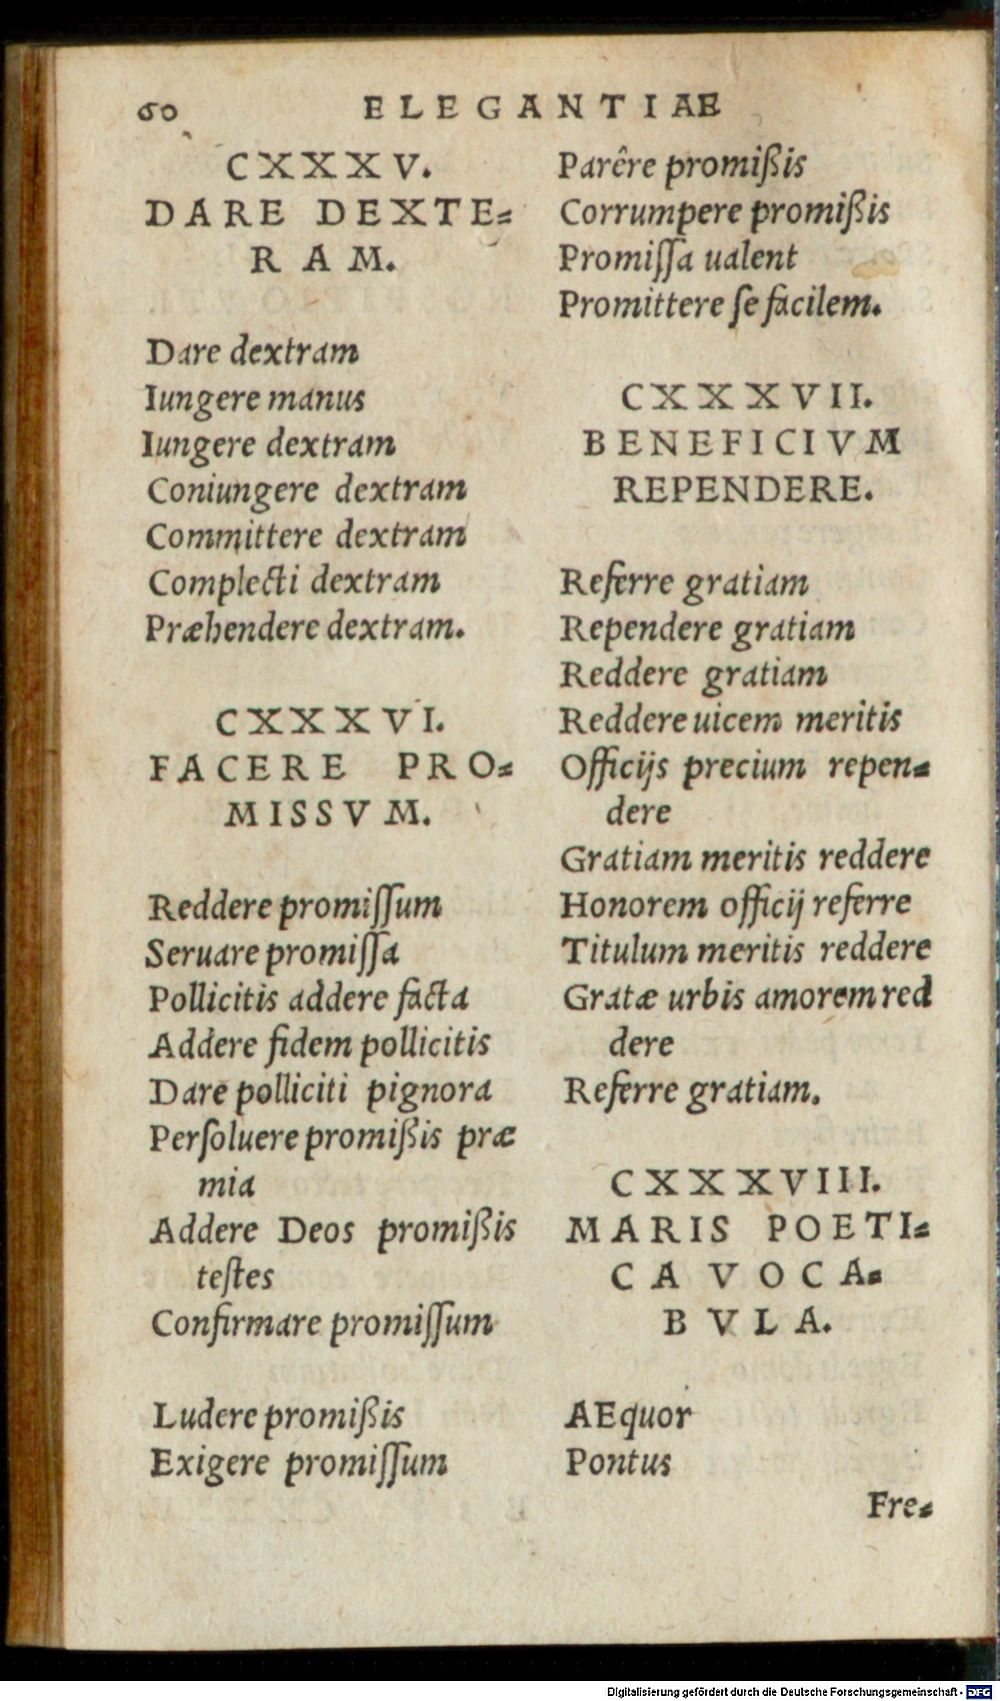 60 ELEGANTIAE
CXXXV.
DARE DEXTE=
RAM.
Dare dextram
Iungere manus
Iungere dextram
Coniungere dextram
Committere dextram
Complecti dextram
Præhendere dextram.
CXXXVI.
FACERE PRO=
MISSVM.
Reddere promiſſum
Seruare promiſſa
Pollicitis addere facta
Addere fidem pollicitis
Dare polliciti pignora
Perſoluere promißis præ
mia
Addere Deos promißis
teſtes
Confirmare promiſſum
Ludere promißis
Exigere promiſſum
Parêre promißis
Corrumpere promißis
Promiſſa ualent
Promittere ſe facilem.
CXXXVII.
BENEFICIVM
REPENDERE.
Referre gratiam
Rependere gratiam
Reddere gratiam
Reddere uicem meritis
Officijs precium repen=
dere
Gratiam meritis reddere
Honorem officij referre
Titulum meritis reddere
Gratæ urbis amorem red
dere
Referre gratiam.
CXXXVIII.
MARIS POETI=
CA VOCA=
BVLA.
AEquor
Pontus
Fre=
Digitalisierung gefördert durch die Deutsche Forschungsgemeinschaft - DFG